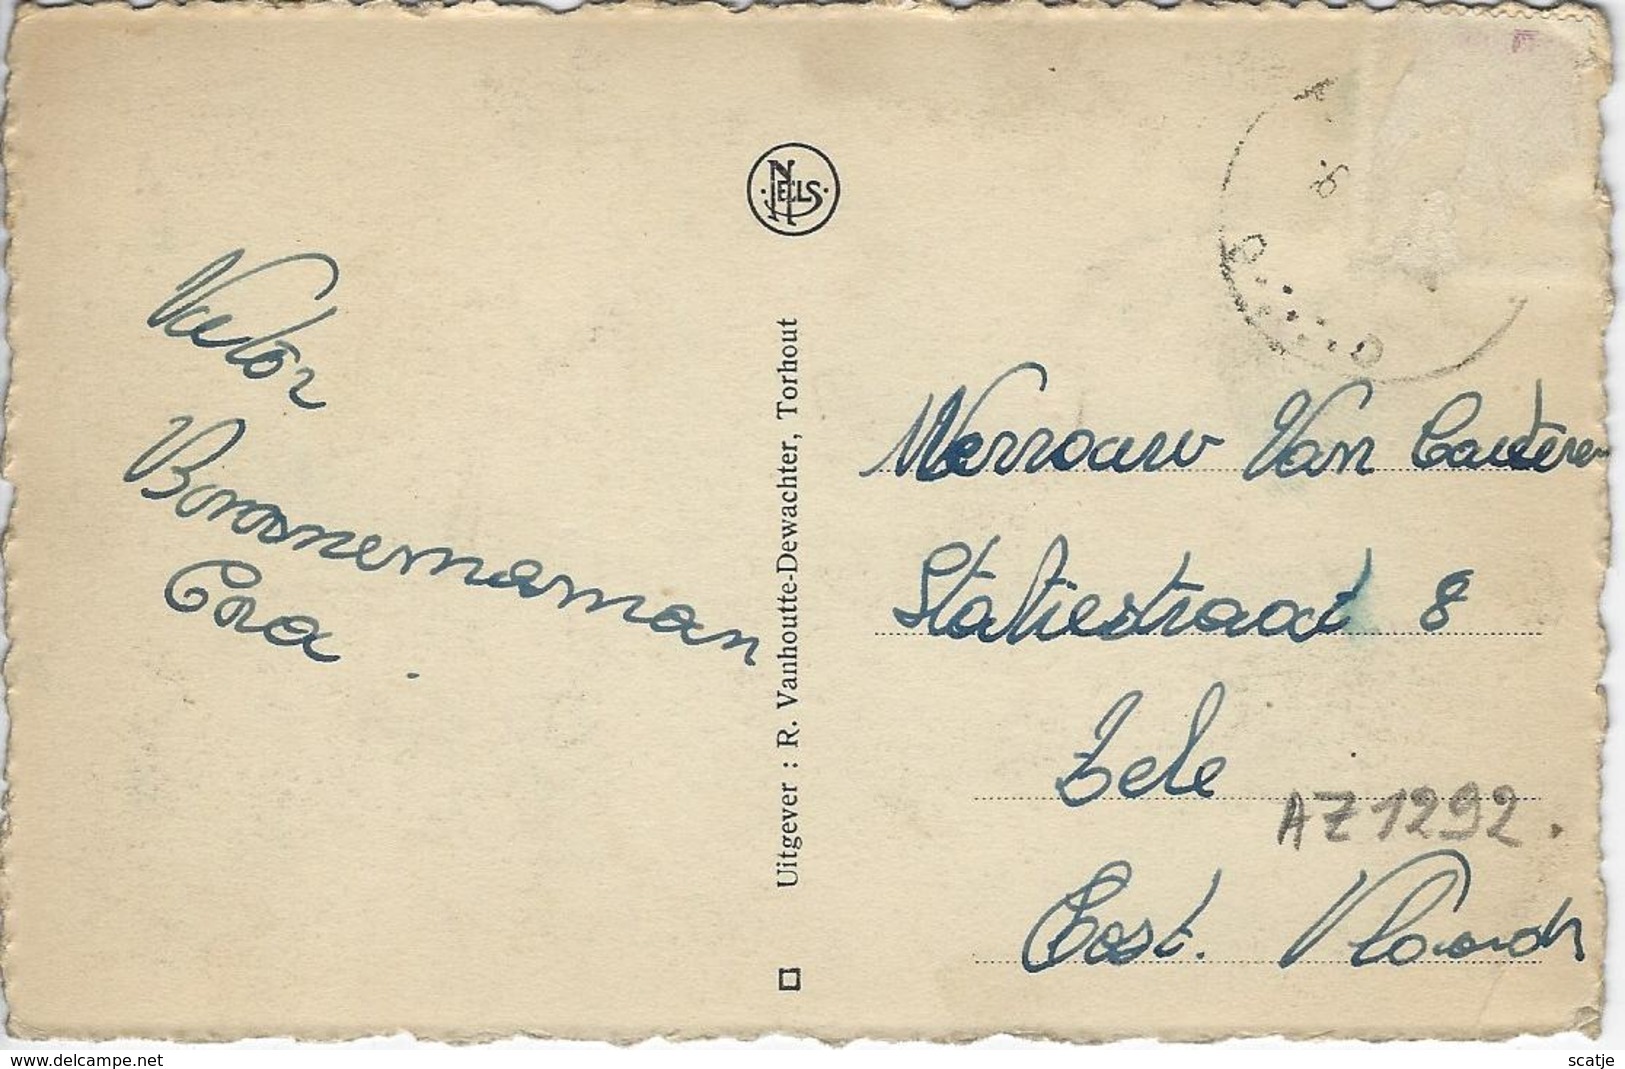 NELS
Victor
Bonomamaman
Cora.
Uitgever : R. Vanhoutte-Dewachter, Torhout
Mevrouw Van Cauteren
Statiestraat 8
Zele
AZ1292.
Oost. Vlaand
www.delcampe.net
scatje